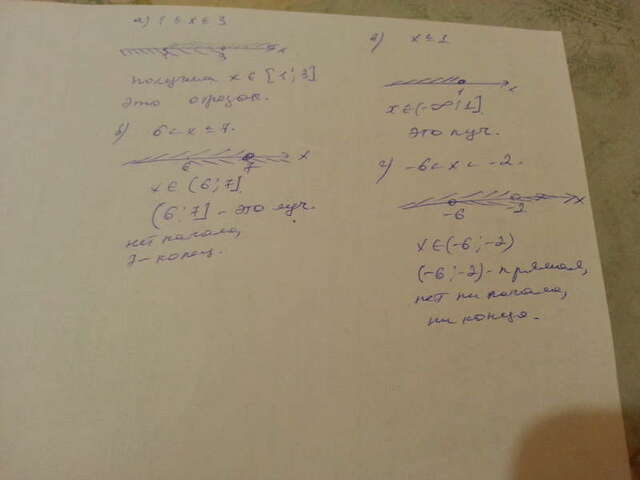 а) 1 ≤ x ≤ 3
1 3 x
получим x ∈ [1; 3]
это отрезок.
б) 6 < x ≤ 7.
6 7 x
x ∈ (6; 7]
(6; 7] - это луч.
нет начала,
7 - конец.
в) x ≤ 1
1 x
x ∈ (-∞; 1]
это луч.
г) -6 < x < -2.
-6 -2 x
x ∈ (-6; -2)
(-6; -2) - прямая,
нет ни начала,
ни конца.